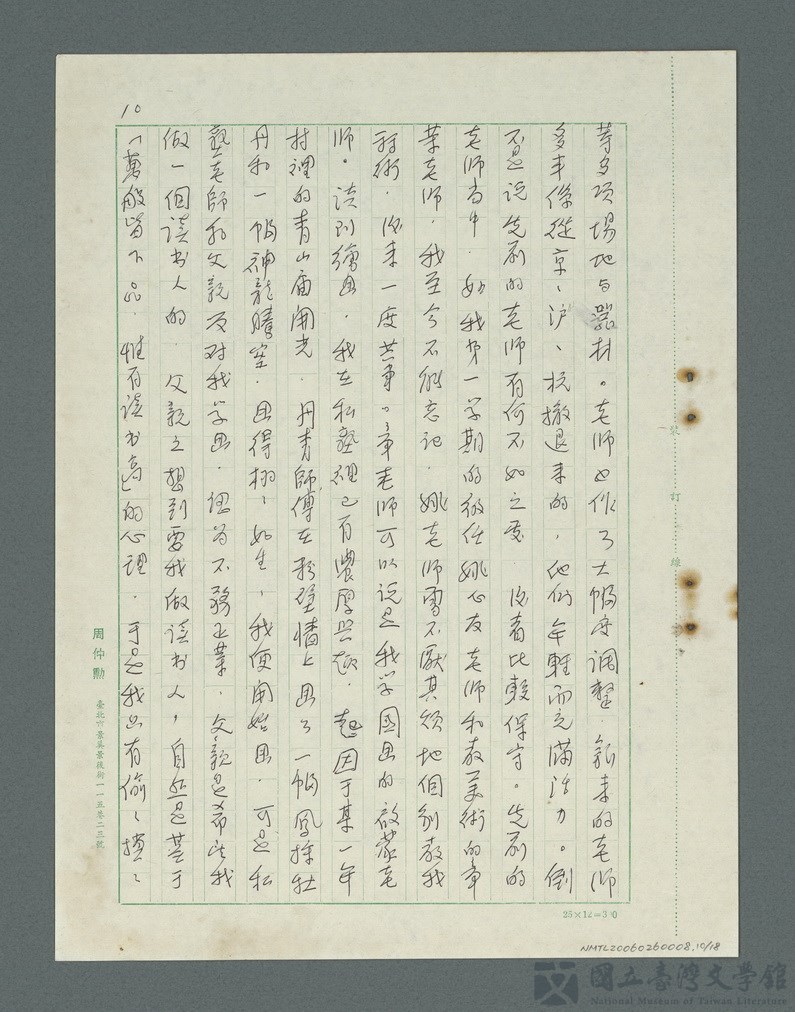 10
等多項場地与器材。老師也作了大幅度調整 新来的老師
多半係從京、沪、杭撤退来的，他们年輕而充滿活力。倒
不是说先前的老师有何不如之处 後者比較保守。先前的
老师当中．如我第一学期的级任姚心友老师和教美術的章
葉老师．我至今不能忘记．姚老师
术．后来一度共事。章老师可以说是我学國画的啟蒙老
师。谈到繪画．我在私塾裡已有濃厚兴趣．起因于某一年
村裡的青山庙開光．丹青師傅在粉墙上画了一幅鳳採牡
丹和一幅神龍騰空．画得栩、如生，我便開始画．可是私
塾老師和父親反对我学画．認为不務正業．父親是希望我
做一個读书人的．父親之想到要我做读书人，自然是基于
「萬般皆下品．惟有读书高」的心理．于是我只有偷、摸、
裝 訂 線
周仲勳 臺北市景美景後街一一五巷二三號
25×12=300
NMTL20060260008.10/18
國立臺灣文學館
National Museum of Taiwan Literature